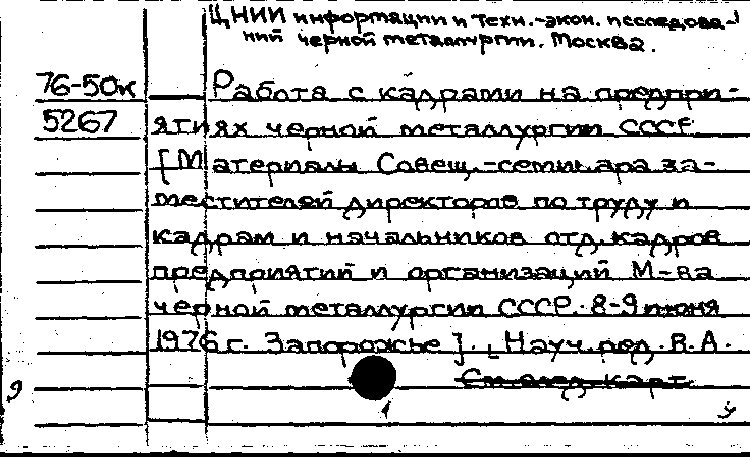 ЦНИИ информации и техн.-экон. исследова-
ний черной металлургии. Москва.
76-50к Работа с кадрами на предпри-
5267 ятиях черной металлургии СССР
[Материалы Совещ.-семинара за-
местителей директоров по труду и
кадрам и начальников отд. кадров
предприятий и организаций М-ва
черной металлургии СССР. 8-9 июня
1976 г. Запорожье]. [Науч. ред. В.А.
См. след. карт.